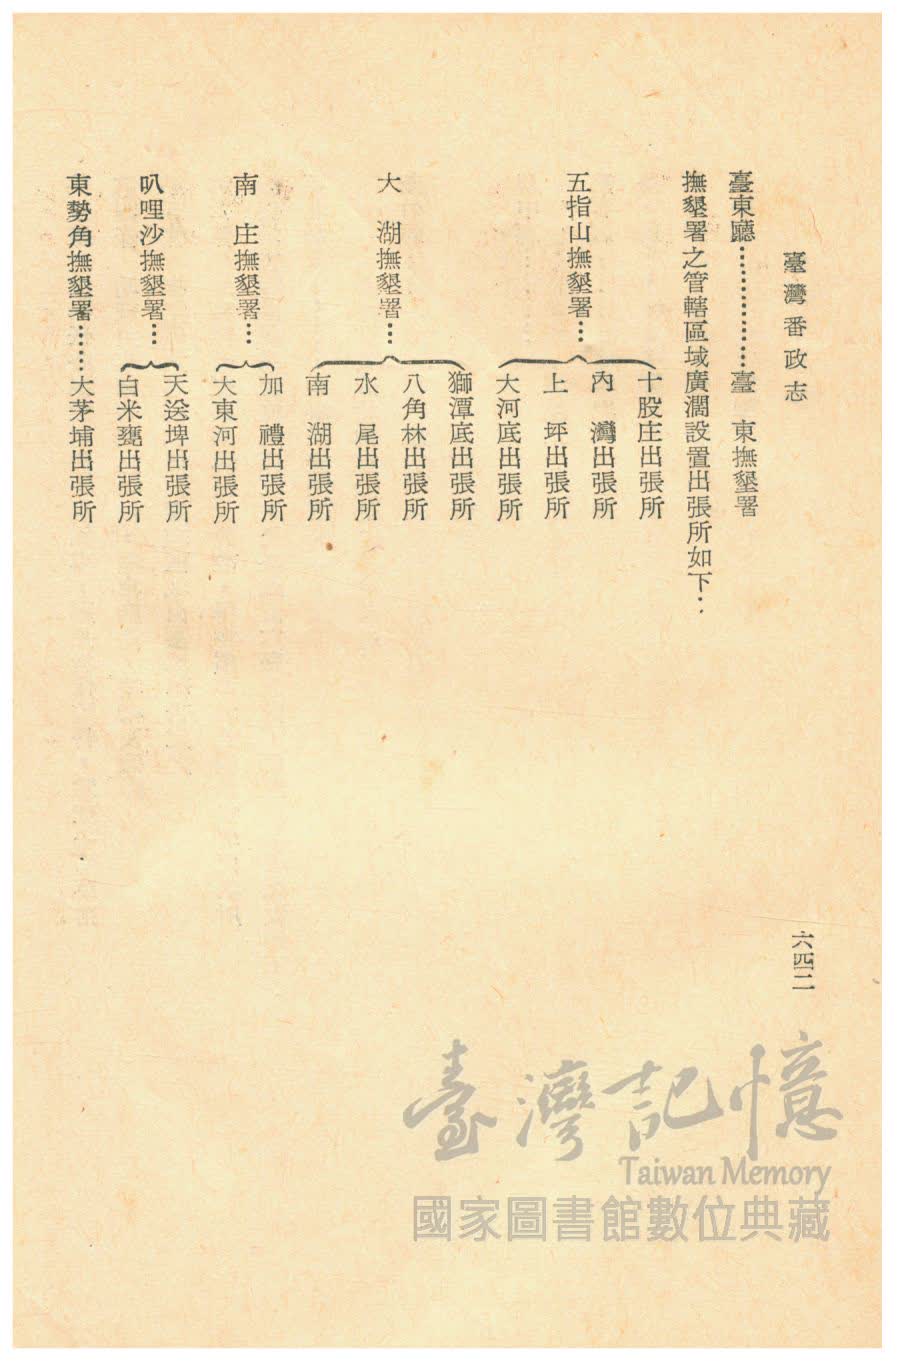 臺灣番政志
六四二
臺東廳……………臺　東撫墾署
撫墾署之管轄區域廣濶設置出張所如下：
五指山撫墾署…
十股庄出張所
內　灣出張所
上　坪出張所
大河底出張所
大　湖撫墾署…
獅潭底出張所
八角林出張所
水　尾出張所
南　湖出張所
南　庄撫墾署…
加　禮出張所
大東河出張所
叭哩沙撫墾署…
天送埤出張所
白米甕出張所
東勢角撫墾署……大茅埔出張所
臺灣記憶
Taiwan Memory
國家圖書館數位典藏